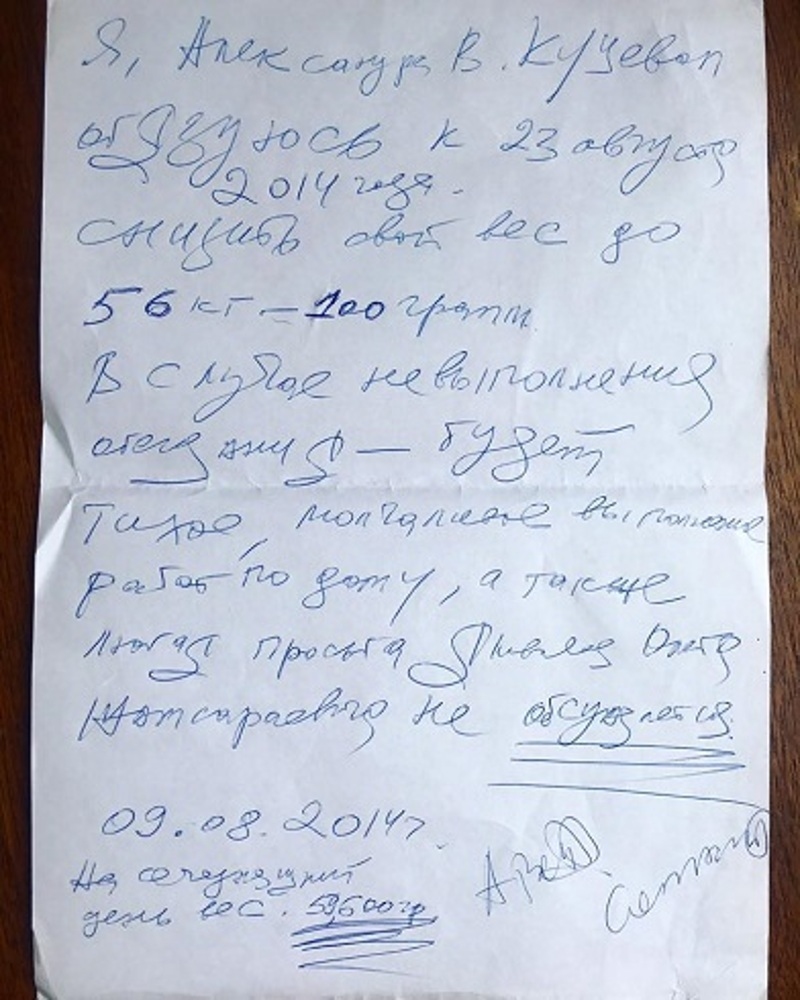 Я, Александра В. Куцевол
обязуюсь к 23 августа
2014 года.
снизить свой вес до
56 кг - 100 грамм.
В случае невыполнения
— будет
Тихое, молчаливое выполнение
работ по дому, а также
любая просьба
не обсуждается.
09.08.2014г.
На сегодняшний
день вес. 59,500 гр